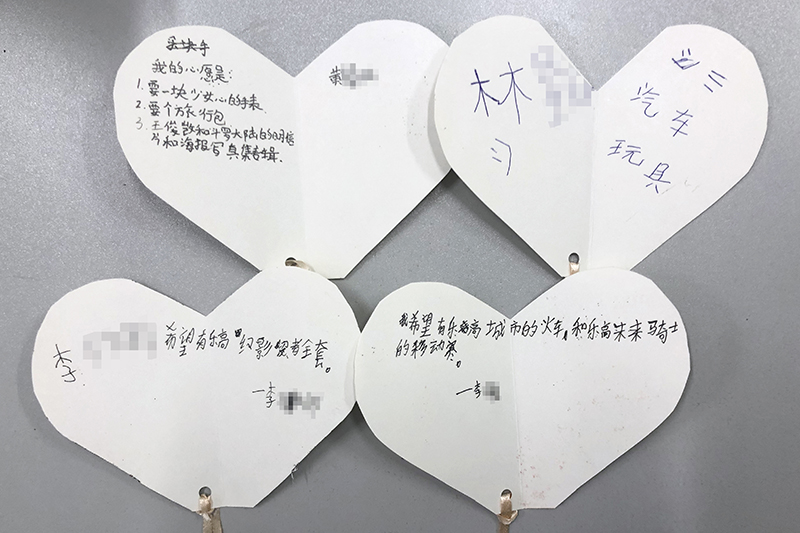 我的心愿是:
1. 要一块少女心的手表
2. 要个旅行包
3. 王俊凯和斗罗大陆的明信
片和海报写真集专辑.
林
汽车
玩具
李
希望有乐高幻影忍者全套。
一李
我希望有乐高城市的火车,和乐高未来骑士
的移动寨。
一李